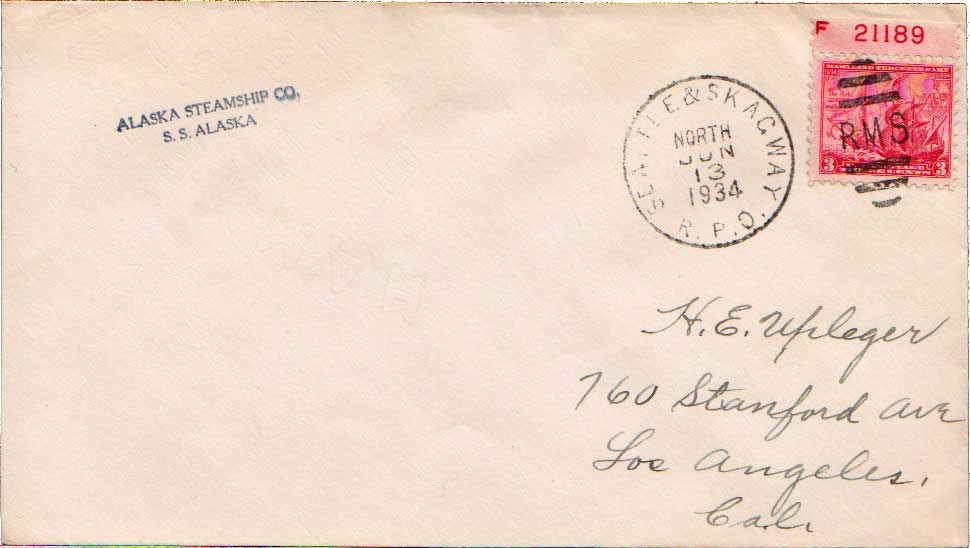 ALASKA STEAMSHIP CO.
S. S. ALASKA
SEATTLE & SKAGWAY
NORTH
JUN
13
1934
R. P. O.
F 21189
RMS
3 3
H. E. Upleger
760 Stanford Ave
Los Angeles,
Cal.